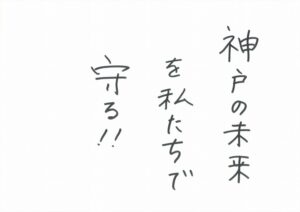 神戸の未来
を私たちで
守る!!